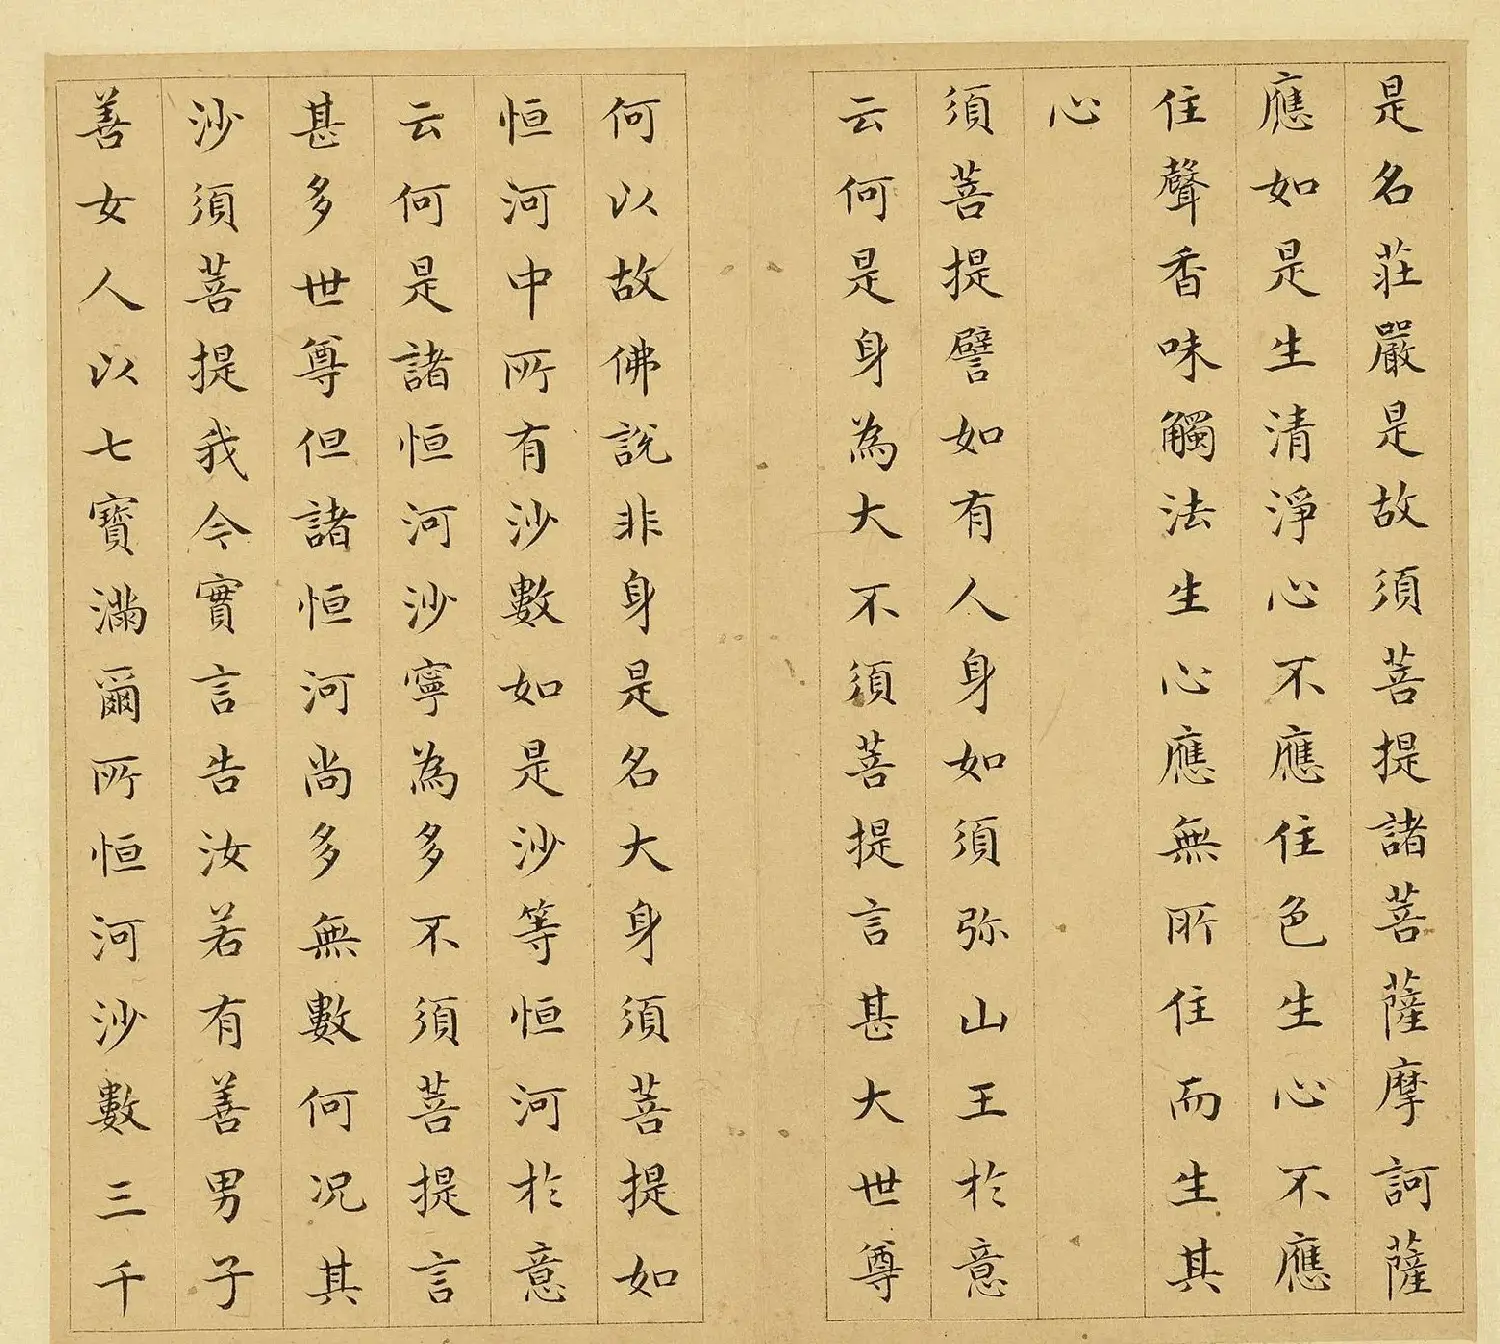 是名莊嚴是故須菩提諸菩薩摩訶薩
應如是生清淨心不應住色生心不應
住聲香味觸法生心應無所住而生其
心
須菩提譬如有人身如須弥山王於意
云何是身為大不須菩提言甚大世尊
何以故佛說非身是名大身須菩提如
恒河中所有沙數如是沙等恒河於意
云何是諸恒河沙寧為多不須菩提言
甚多世尊但諸恒河尚多無數何況其
沙須菩提我今實言告汝若有善男子
善女人以七寶滿爾所恒河沙數三千